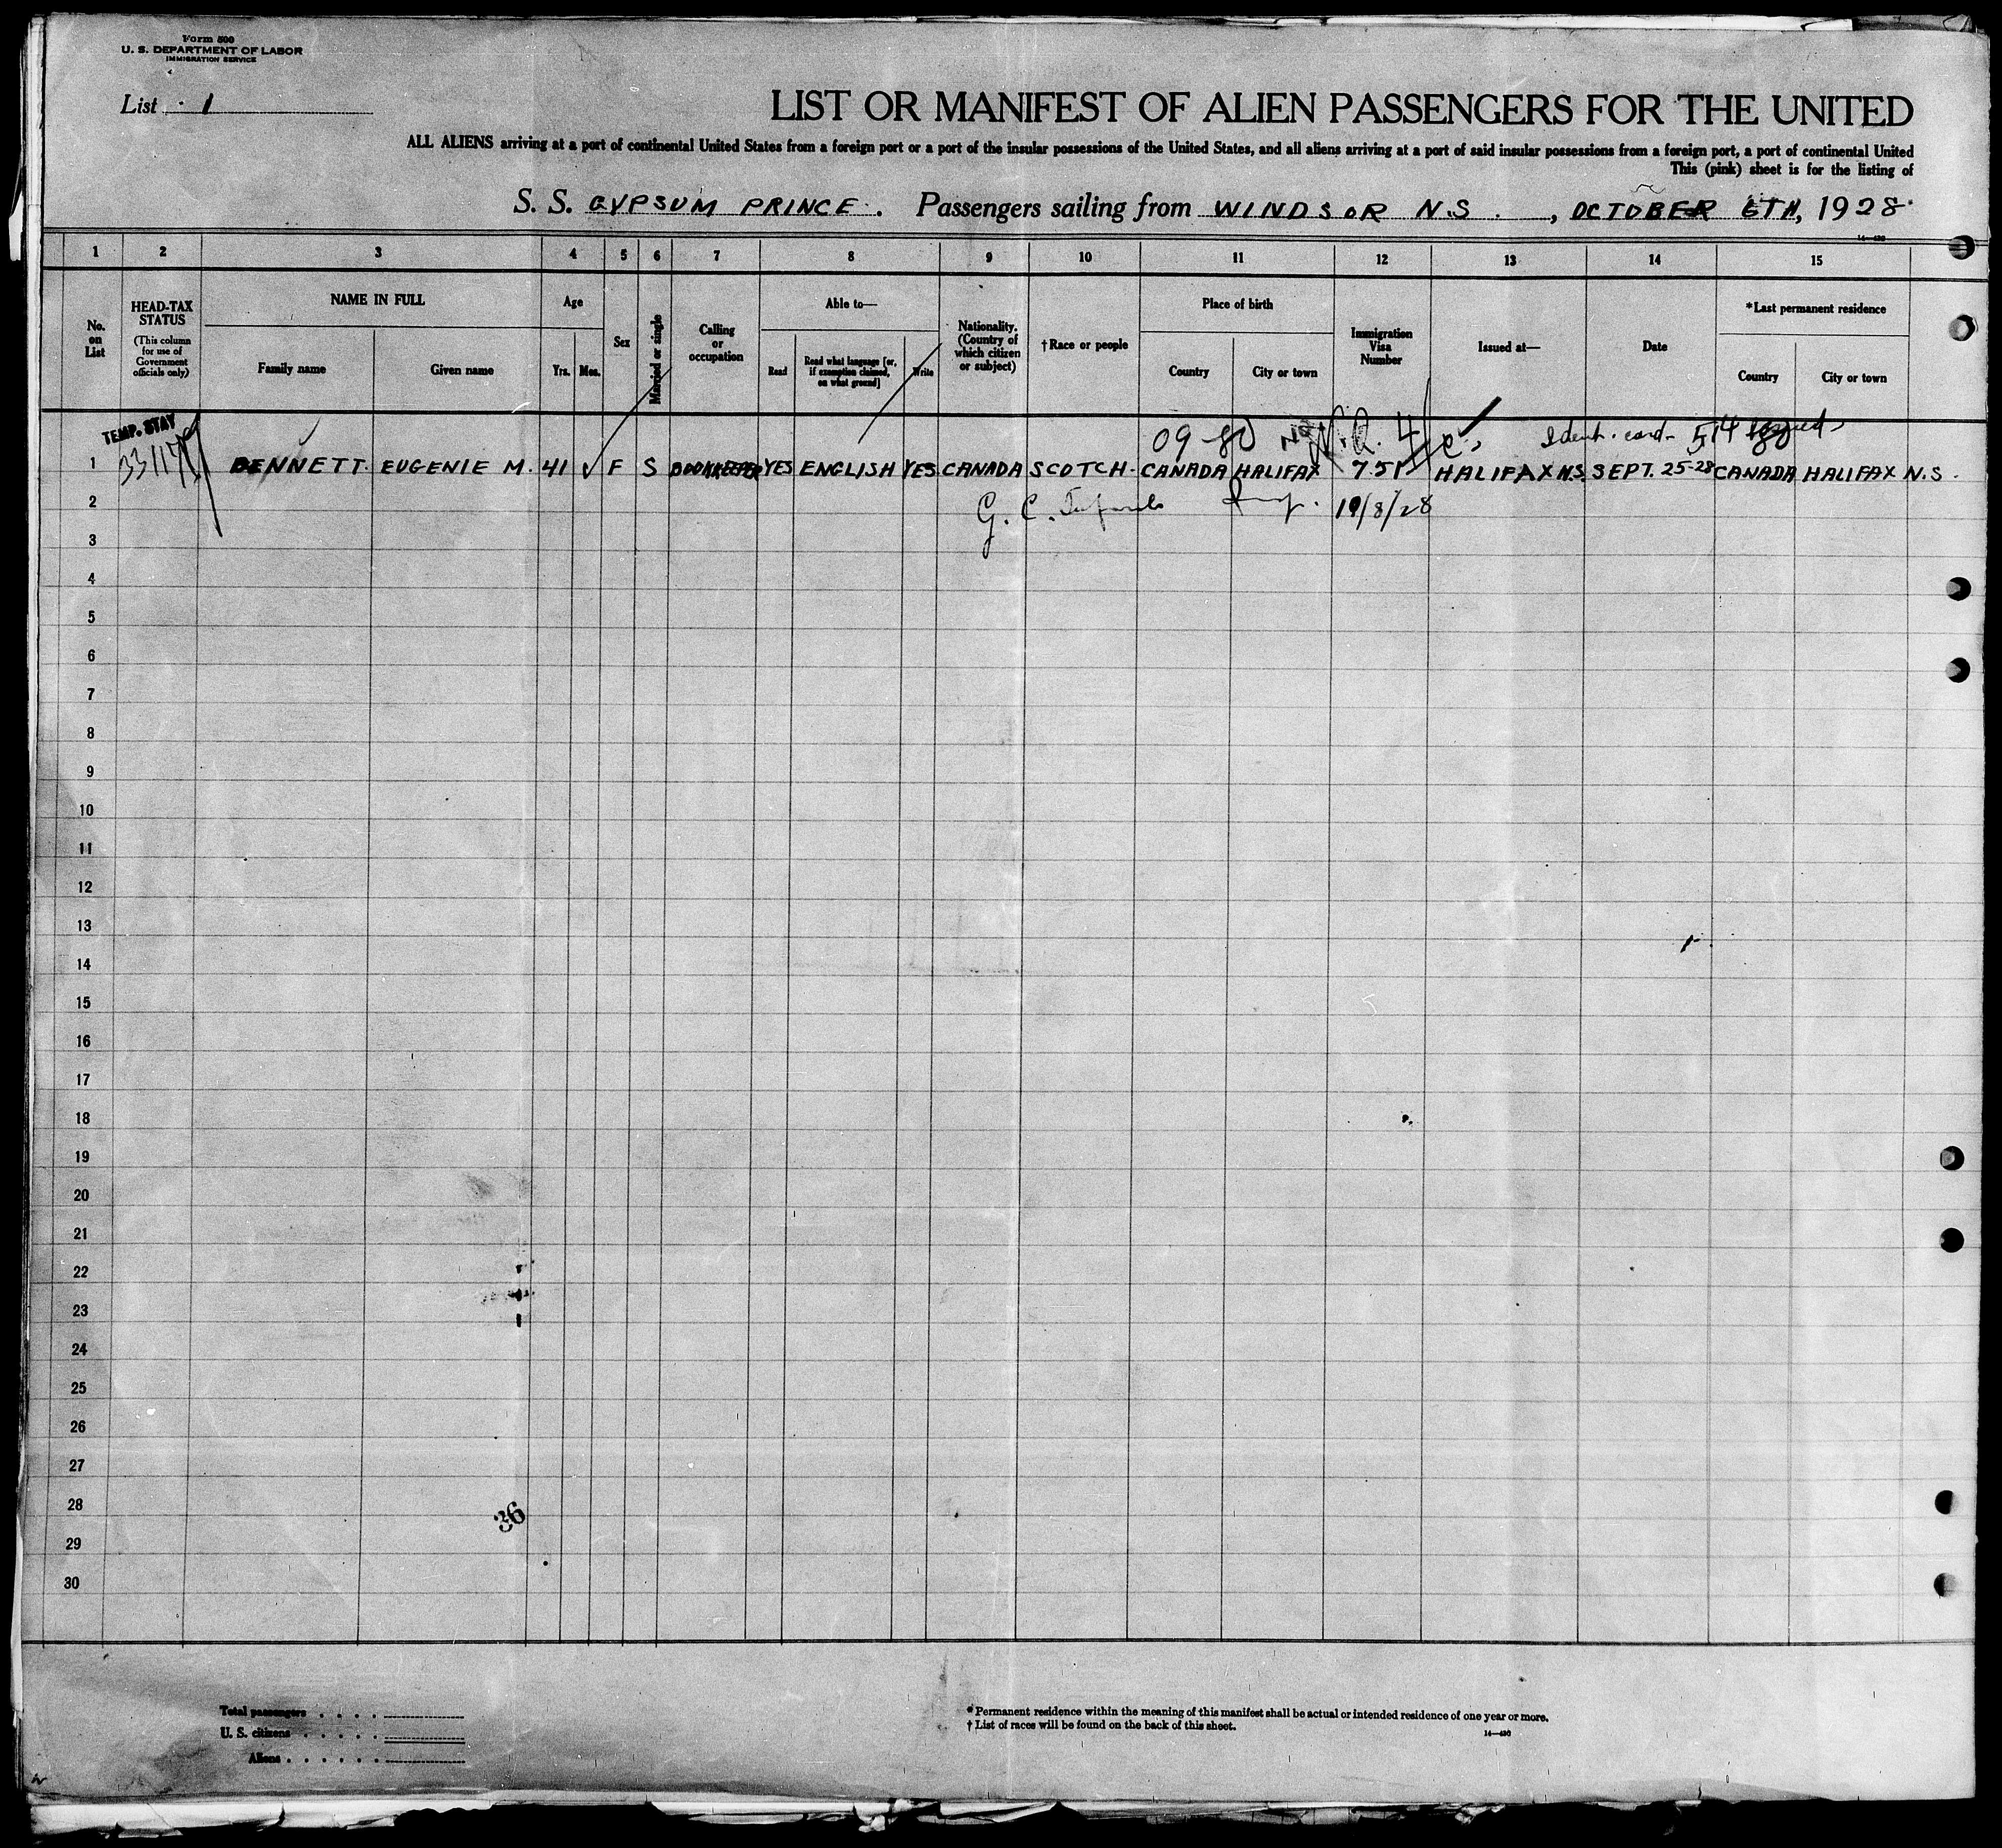 Form 500
U. S. DEPARTMENT OF LABOR
IMMIGRATION SERVICE
List 1
LIST OR MANIFEST OF ALIEN PASSENGERS FOR THE UNITED
ALL ALIENS arriving at a port of continental United States from a foreign port or a port of the insular possessions of the United States, and all aliens arriving at a port of said insular possessions from a foreign port, a port of continental United
This (pink) sheet is for the listing of
S. S. GYPSUM PRINCE. Passengers sailing from WINDSOR N.S., OCTOBER 6TH, 1928
14—430
1 2 3 4 5 6 7 8 9 10 11 12 13 14 15
No. on List
HEAD-TAX STATUS
(This column for use of Government officials only)
NAME IN FULL
Family name
Given name
Age
Yrs. Mos.
Sex
Married or single
Calling or occupation
Able to—
Read
Read what language [or, if exemption claimed, on what ground]
Write
Nationality. (Country of which citizen or subject)
† Race or people
Place of birth
Country
City or town
Immigration Visa Number
Issued at—
Date
*Last permanent residence
Country
City or town
TEMP. STAY
09-80 Ident. card 514
1 BENNETT EUGENIE M. 41 F S BOOKKEEPER YES ENGLISH YES CANADA SCOTCH CANADA HALIFAX 751 HALIFAX N.S. SEPT. 25-28 CANADA HALIFAX N.S.
2 G. C. 10/8/28
3
4
5
6
7
8
9
10
11
12
13
14
15
16
17
18
19
20
21
22
23
24
25
26
27
28
36
29
30
Total passengers
U. S. citizens
Aliens
* Permanent residence within the meaning of this manifest shall be actual or intended residence of one year or more.
† List of races will be found on the back of this sheet.
14—430